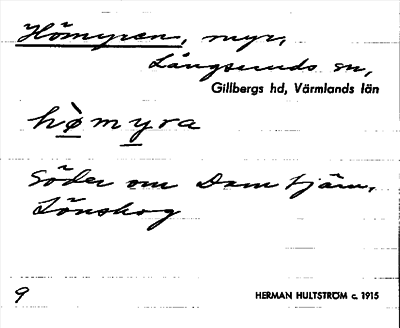 Hömyren, myr,
Långseruds sn,
Gillbergs hd, Värmlands län
hømyra
Söder om Damtjärn,
Lönskog
9 HERMAN HULTSTRÖM c. 1915